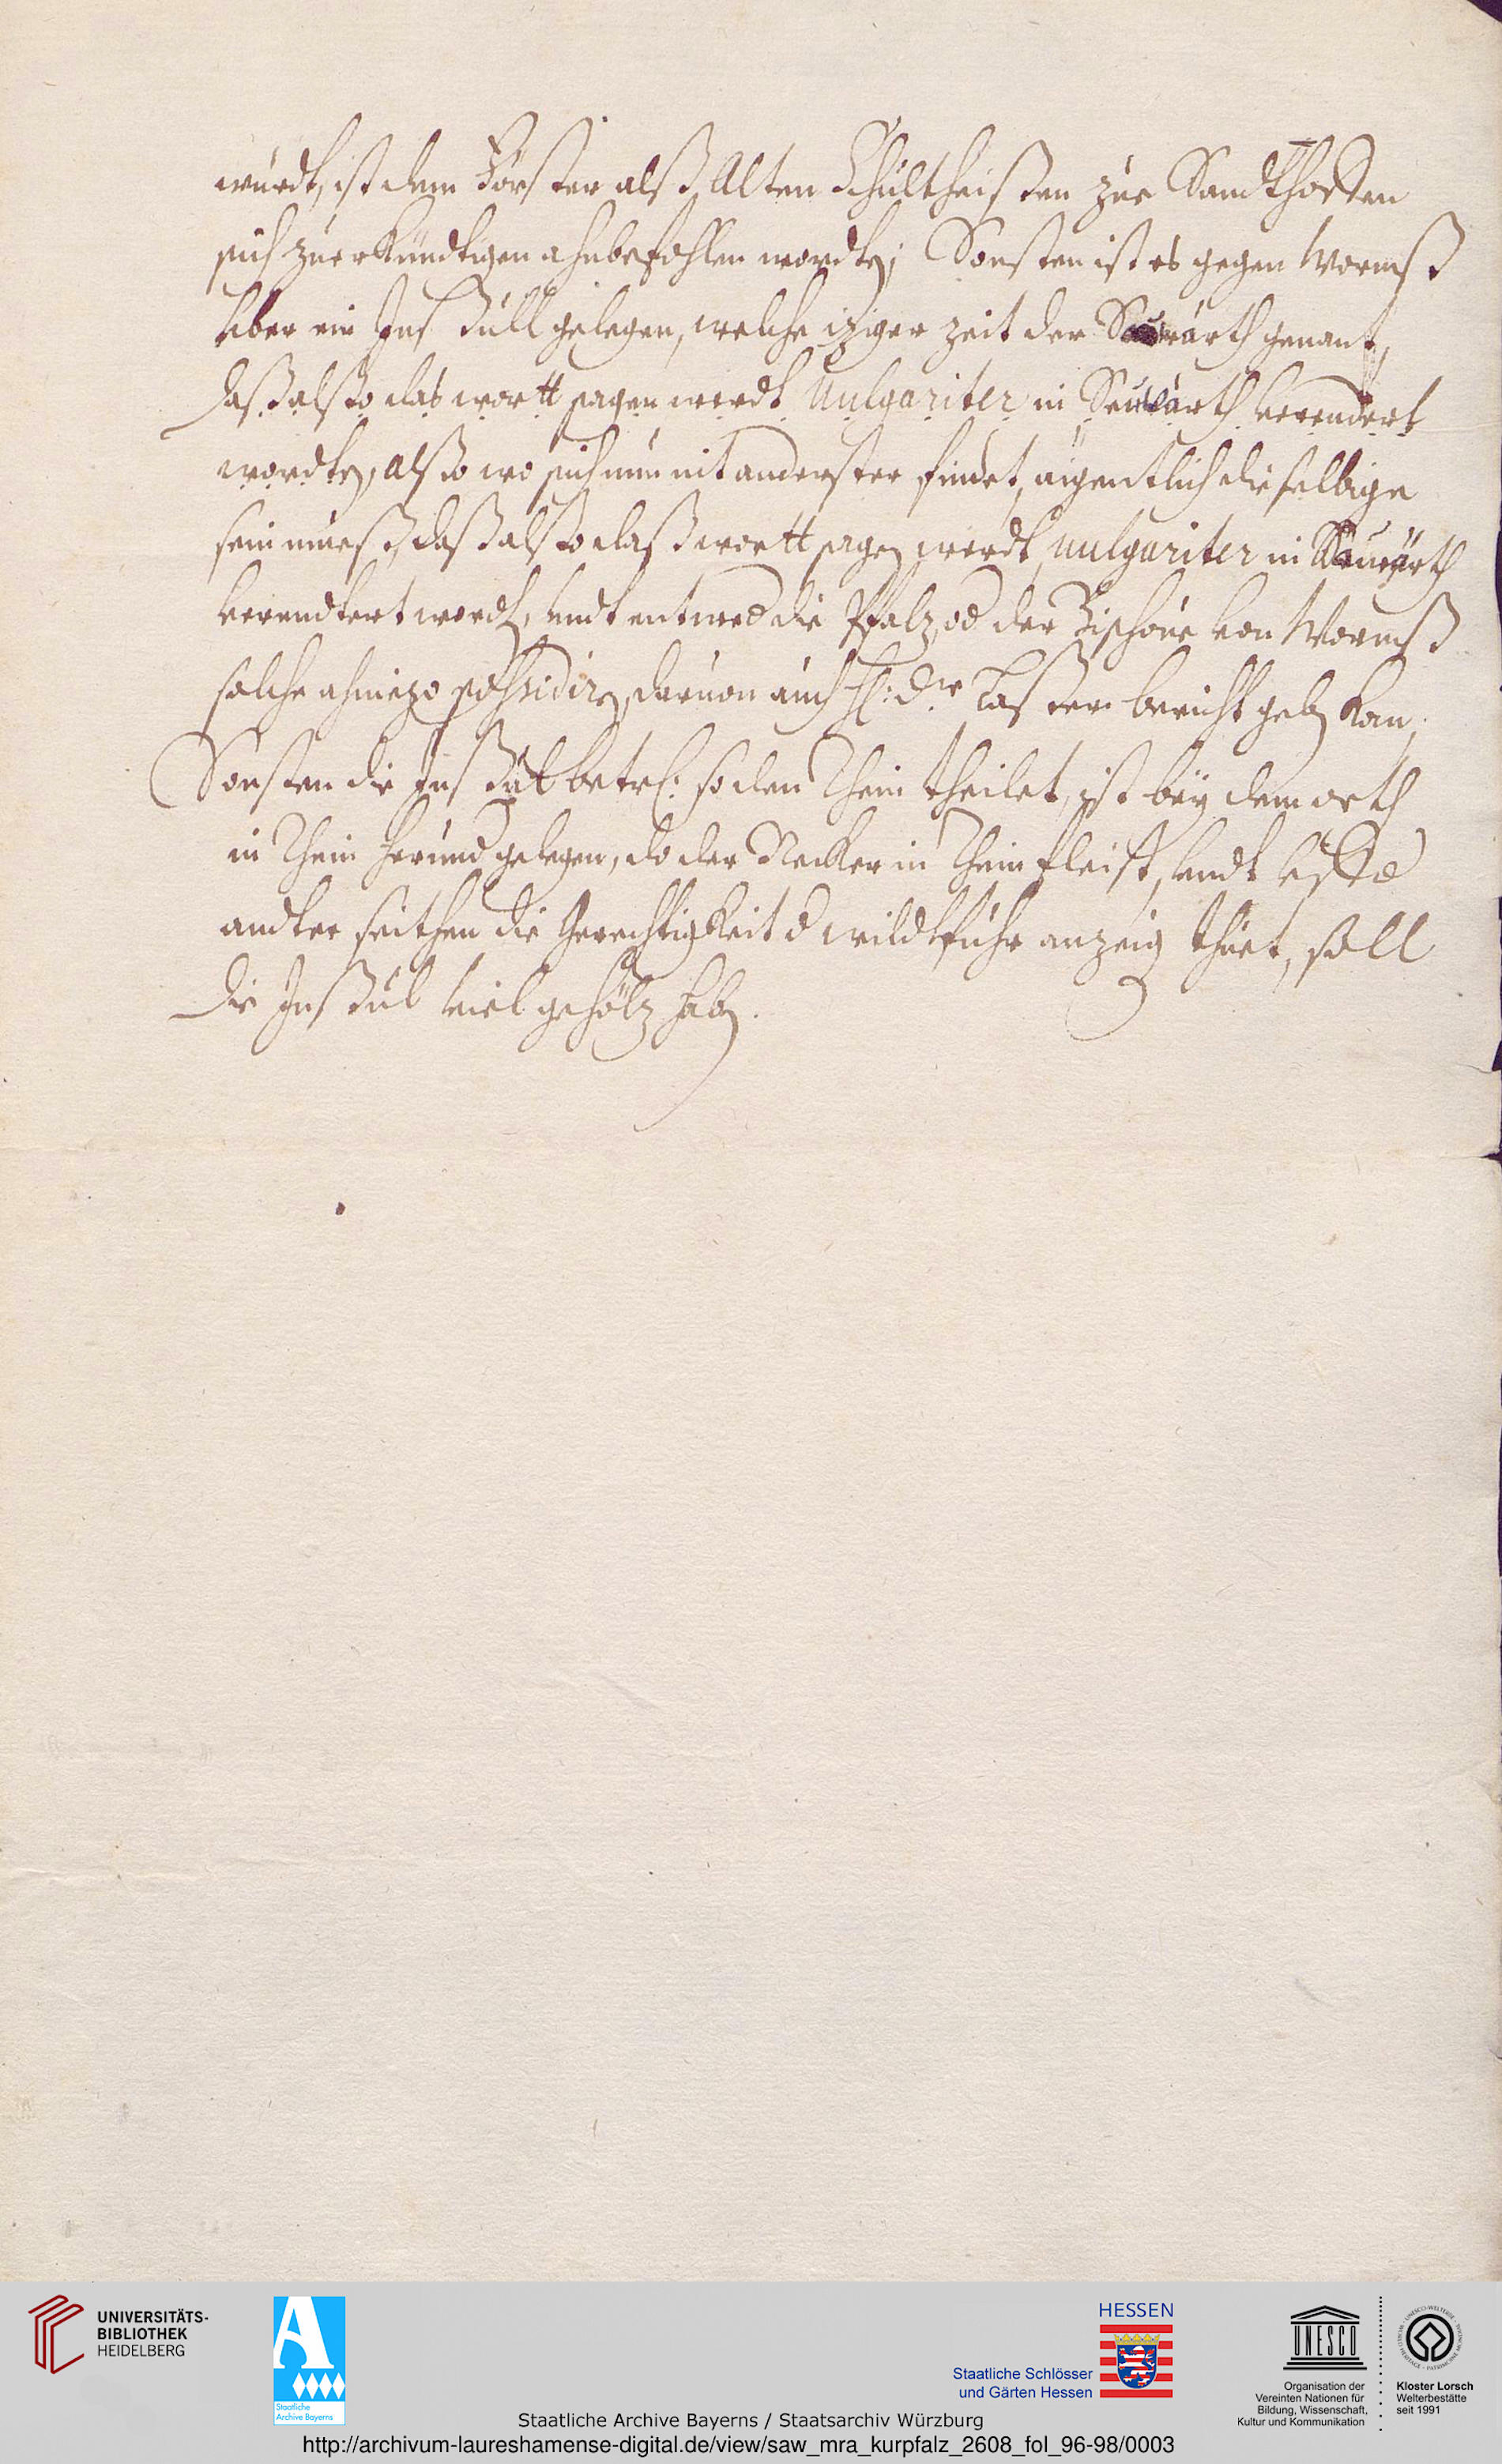 würdt, ist dem Förster alß Alten Schultheißen zue Sandthoffen
sich zuerkündtigen ahnbefohlen wordten; Sonsten ist es gegen Wormbß
über ein Inßull gelegen, welche iziger zeit der Sauwärth genant,
daß alßo das wortt sagen werdt uulgariter in Seuwärth verendert
wordten, alßo wo sich nun nit anderster findet, aigentlich dieselbige
sein mueß, daß alßo daß wortt sagen werdt, uulgariter in Sauwärth
verendtert wordten, undt entwed die Pfalz, od der Bischoue von Wormbß
solche ahniezo possidiren, daruon auch H: Dr Caster bericht geben kan,
Sonsten die Inßul betr: so den Rhein theilet, ist bey dem orth
in Rhein herumb gelegen, do der Necker in Rhein fleist, undt uff d
andter seithen die Gerechtigkeit d wildtfuhr anzeig thuet, soll
die Inßul viel gehölz haben.
UNIVERSITÄTS-
BIBLIOTHEK
HEIDELBERG
Staatliche
Archive Bayerns
HESSEN
Staatliche Schlösser
und Gärten Hessen
UNESCO
Organisation der
Vereinten Nationen für
Bildung, Wissenschaft,
Kultur und Kommunikation
Kloster Lorsch
Welterbestätte
seit 1991
Staatliche Archive Bayerns / Staatsarchiv Würzburg
http://archivum-laureshamense-digital.de/view/saw_mra_kurpfalz_2608_fol_96-98/0003